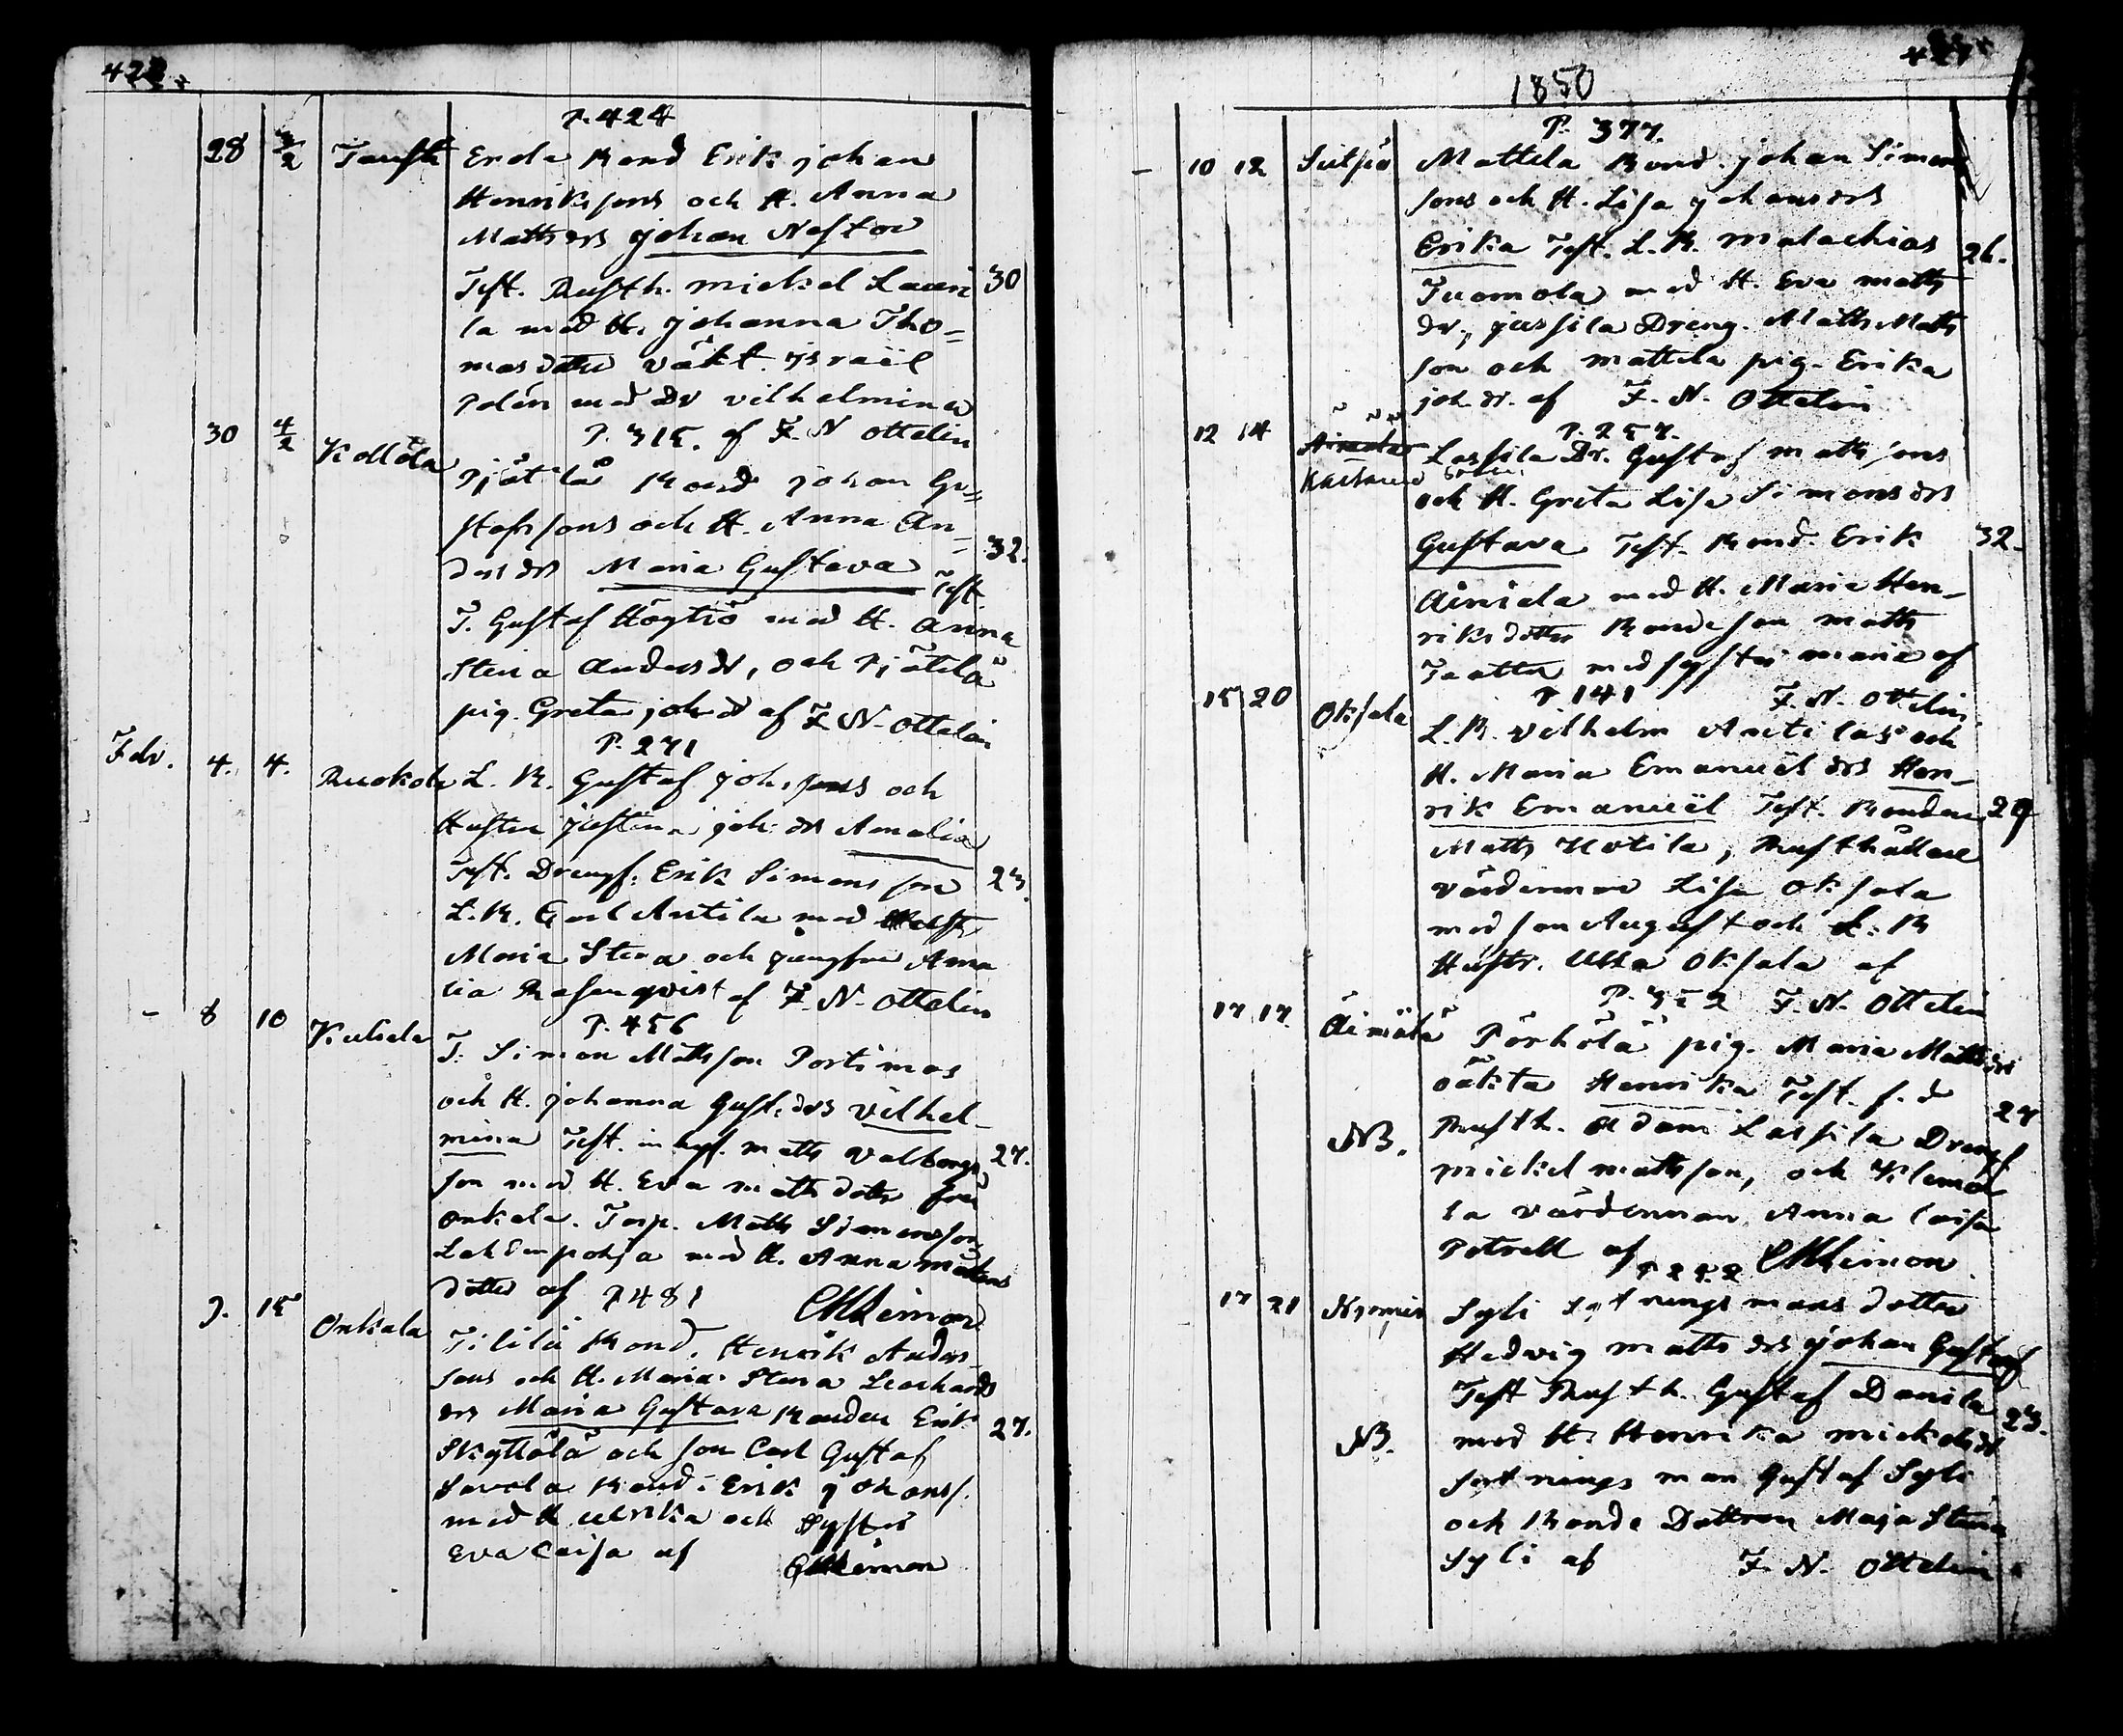 1850
P. 424
28 3/2 Tausti Erola Bond Erik Johan
Henrikssons och H. Anna
Mattsdrs Johan Nestor
Test. Rusth. Mickel Lauri 30
la med H. Johanna Tho=
masdotter väkt. Israël
Polén med Dr Vilhelmina
P. 315. af F. N Ottelin
30 4/2 Kollola Pjätilä Bonde Johan Gu=
stafssons och H. Anna An=
dersdrs Maria Gustava Test. 32.
T. Gustaf Högtrö med H. Anna
Stina Andersdr, och Pjätilä
pig. Greta johdr af F. N. Ottelin
P. 271
Febr. 4. 4. Ruokola L. B. Gustaf Joh.sons och
Hustru Justina joh. drs Amalia
Test. Drengs. Erik Simonsson 23.
L. B. Carl Antila med Hust.
Maria Stina och jungfru Ama
lia Rosenqvist af F. N. Ottelin
P. 456
- 8 10 Kulsiala T. Simon Mattsson Portimos
och H. Johanna Gust.drs Vilhel-
mina Test. inhys. Matts Valborgs 27.
son med H. Eva Mattsdotter från
Onkala. Torp. Matts Simonsson
Lahdenpohja med H. Anna Mårtens
dotter af P 481
9. 15 Onkala Tililä Bond. Henrik Anders-
sons och H. Maria Stina Leonhards
drs Maria Gustava Bonden Erik 27.
Skyttälä och son Carl Gustaf
Savola Bond. Erik Johanss.
med H Ulrika och Syster
Eva Caisa af
P. 377.
- 10 12 Sutjio Mattila Bond. Johan Simons
sons och H. Lisa Johansdrs
Erika Test. L. B. Malachias 26.
Tuomola med H. Eva Matts
dr, Jussila Dreng. Matts Matts
son och Mattila pig. Erika
joh. dr. af F. N. Ottelin
P. 257.
12 14 Lassila Dr. Gustaf Mattssons
och H. Greta Lisa Simonsdrs
Gustava Test. Bond. Erik 32.
Äiniälä med H. Maria Hen-
riksdotter Bondeson Matts
med syster Maria af
P 141 F. N. Ottelin
15 20 Oksala L. B. Vilhelm Anttilas och
H. Maria Emanuëlsdrs Hen-
rik Emanuël Test. Bonden 29
Matts Uotila, Rusthållare
värdinnan Lisa Oksala
med son August och L. B
Hustr. Ulla Oksala af
P. 352 F. N. Ottelin
17 17. Äimälä Pörhölä pig. Maria Mattsdrs
oäkta Henrika Test. f. d 27
NB. Rusth. Adam Lassila Drengs.
Mickel Mattsson, och Klemo
la värdinnan Anna Caisa
Petrell af
17 21 Nyomis Syli Rotningsmans dotter
Hedvig Mattsdrs Johan Gustaf
Test Rusth. Gustaf Danila 23.
NB. med H. Henrika Mickelsdr
Rotningsman Gustaf Syli
och Bonde Dottren Maja Stina
Syli af F. N. Ottelin